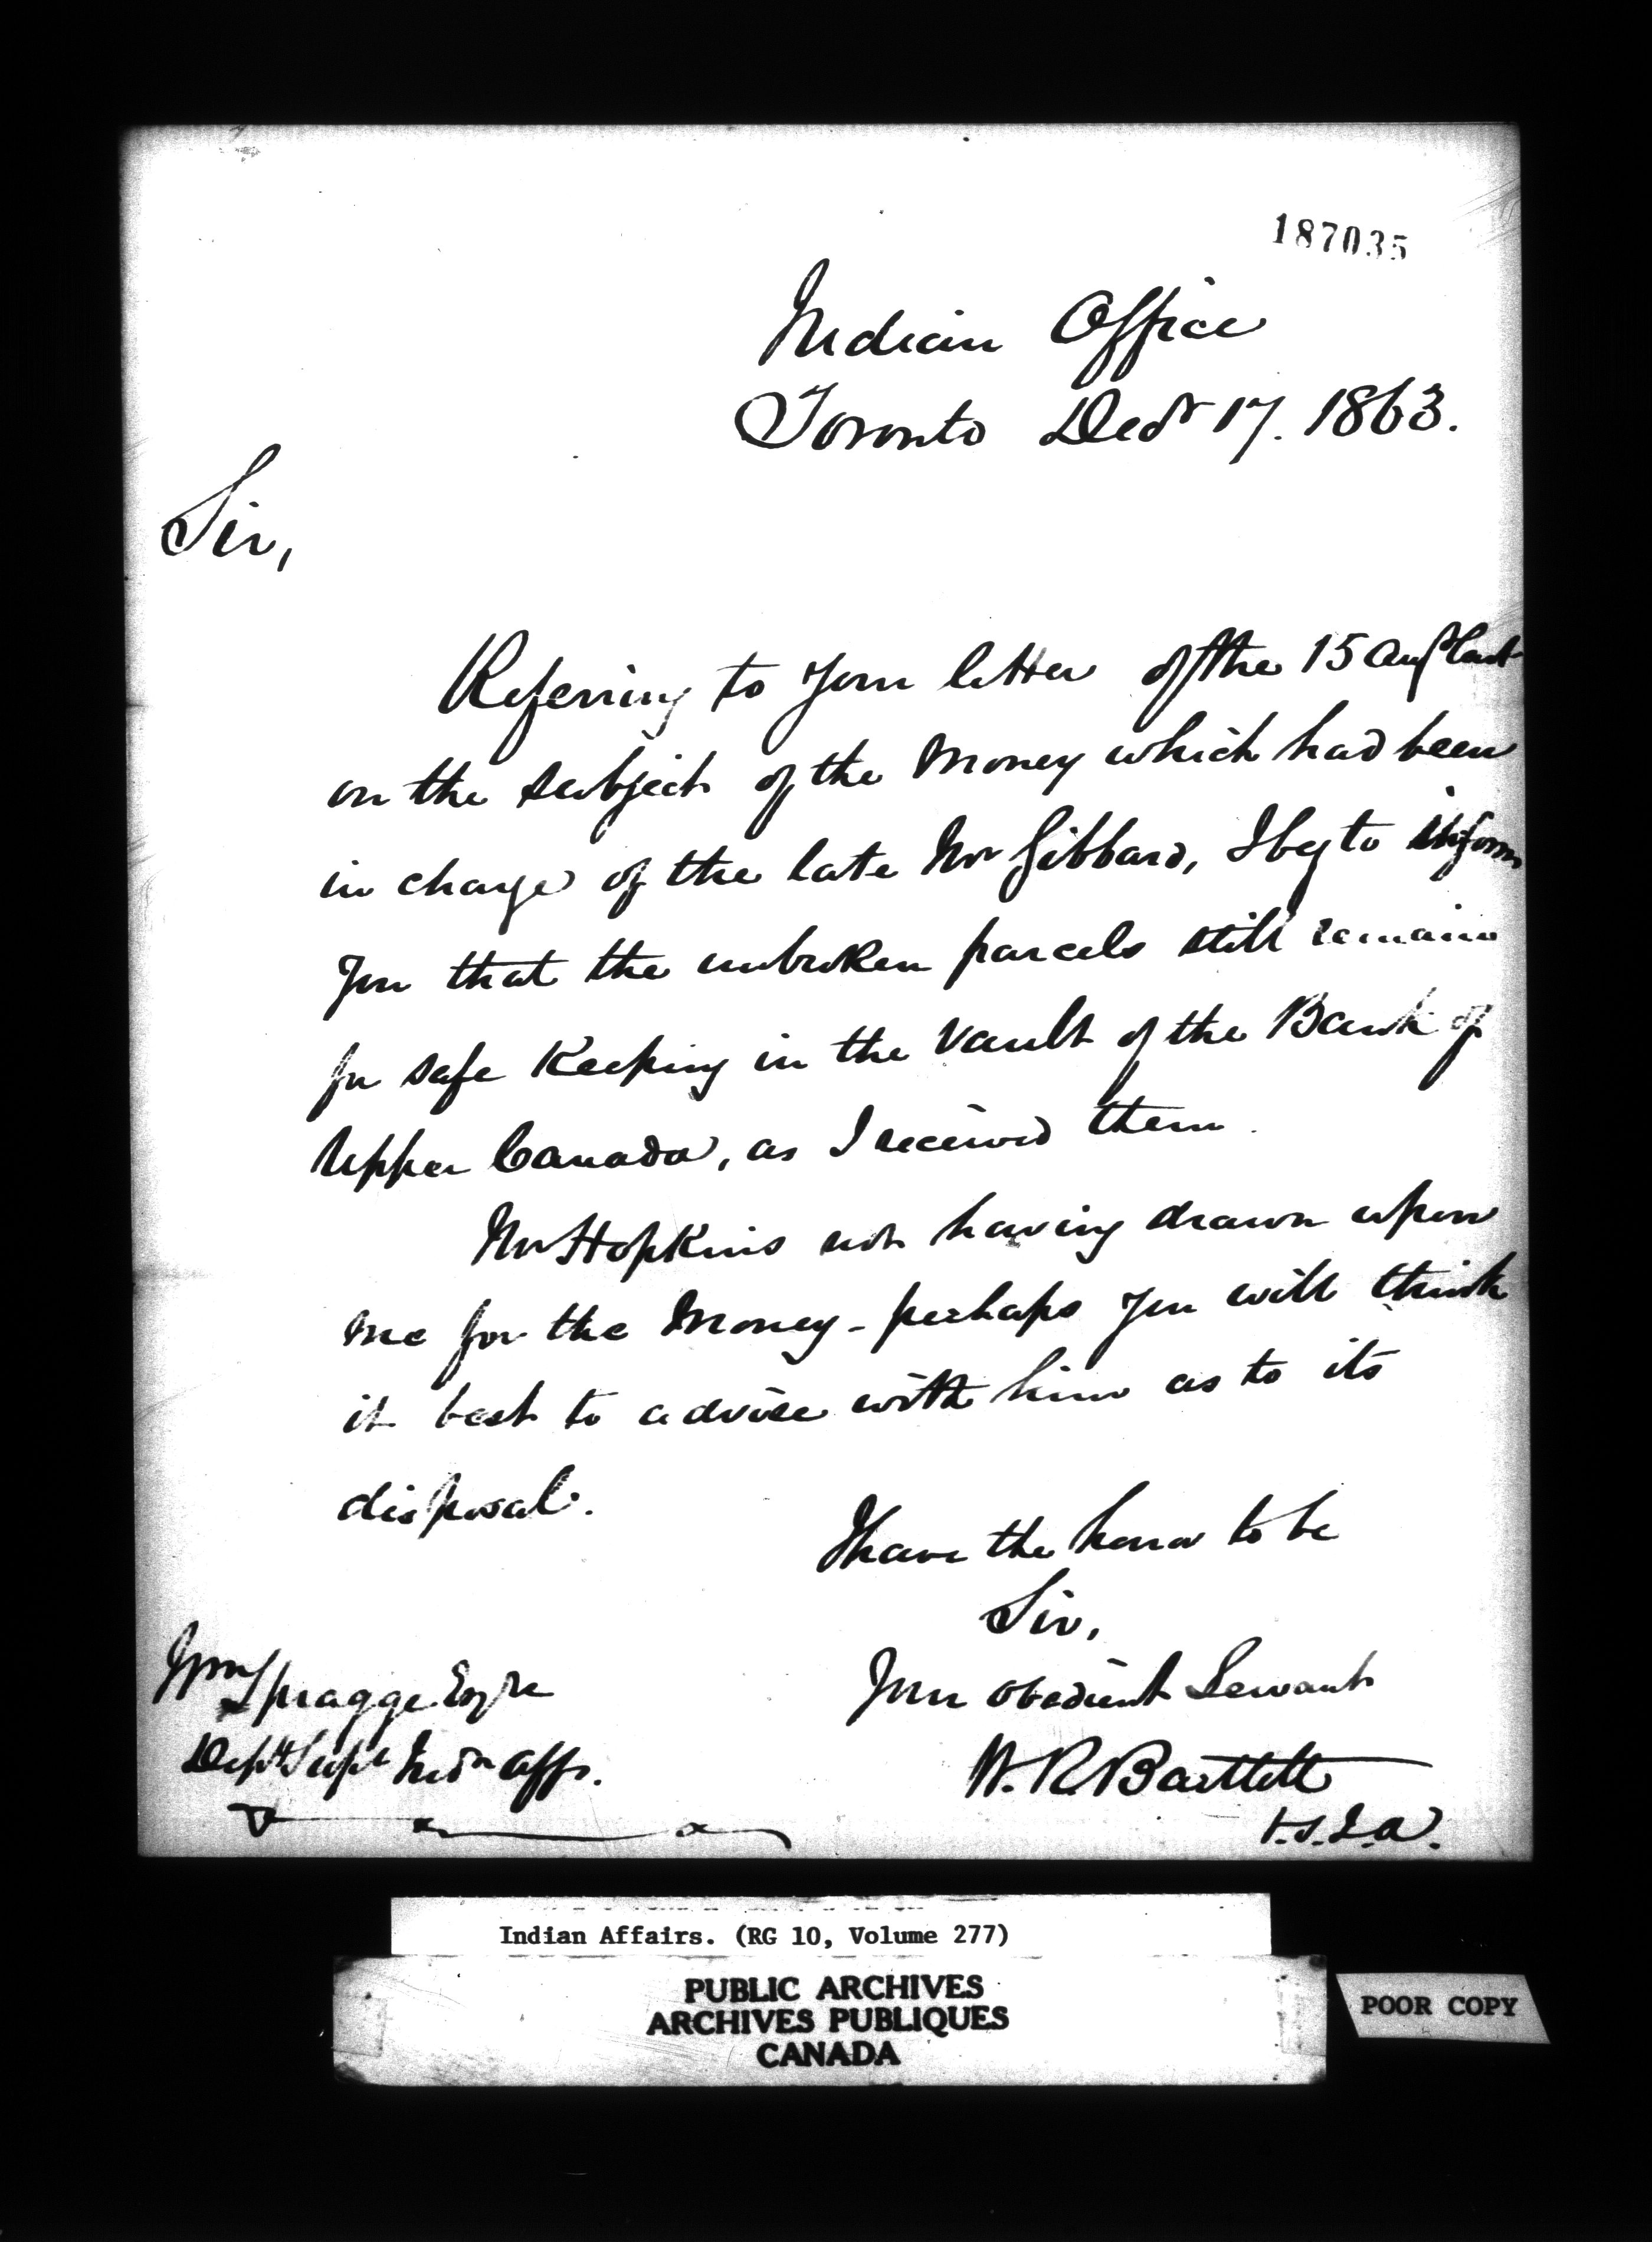 187035
Indian Office
Toronto Decr 17. 1863.
Sir,
Referring to your letter of the 15 Augt last
on the subject of the money which had been
in charge of the late Mr Gibbard, I beg to inform
you that the unbroken parcels still remain
for safe keeping in the vault of the Bank of
Upper Canada, as I received them.
Mr Hopkins not having drawn upon
me for the money - perhaps you will think
it best to advise with him as to its
disposal.
I have the honor to be
Sir,
Your obedient Servant
W. R. Bartlett
V.S.I.A.
Wm Spragge Esqre
Depy Supt Indn Affs.
Indian Affairs. (RG 10, Volume 277)
PUBLIC ARCHIVES
ARCHIVES PUBLIQUES
CANADA
POOR COPY